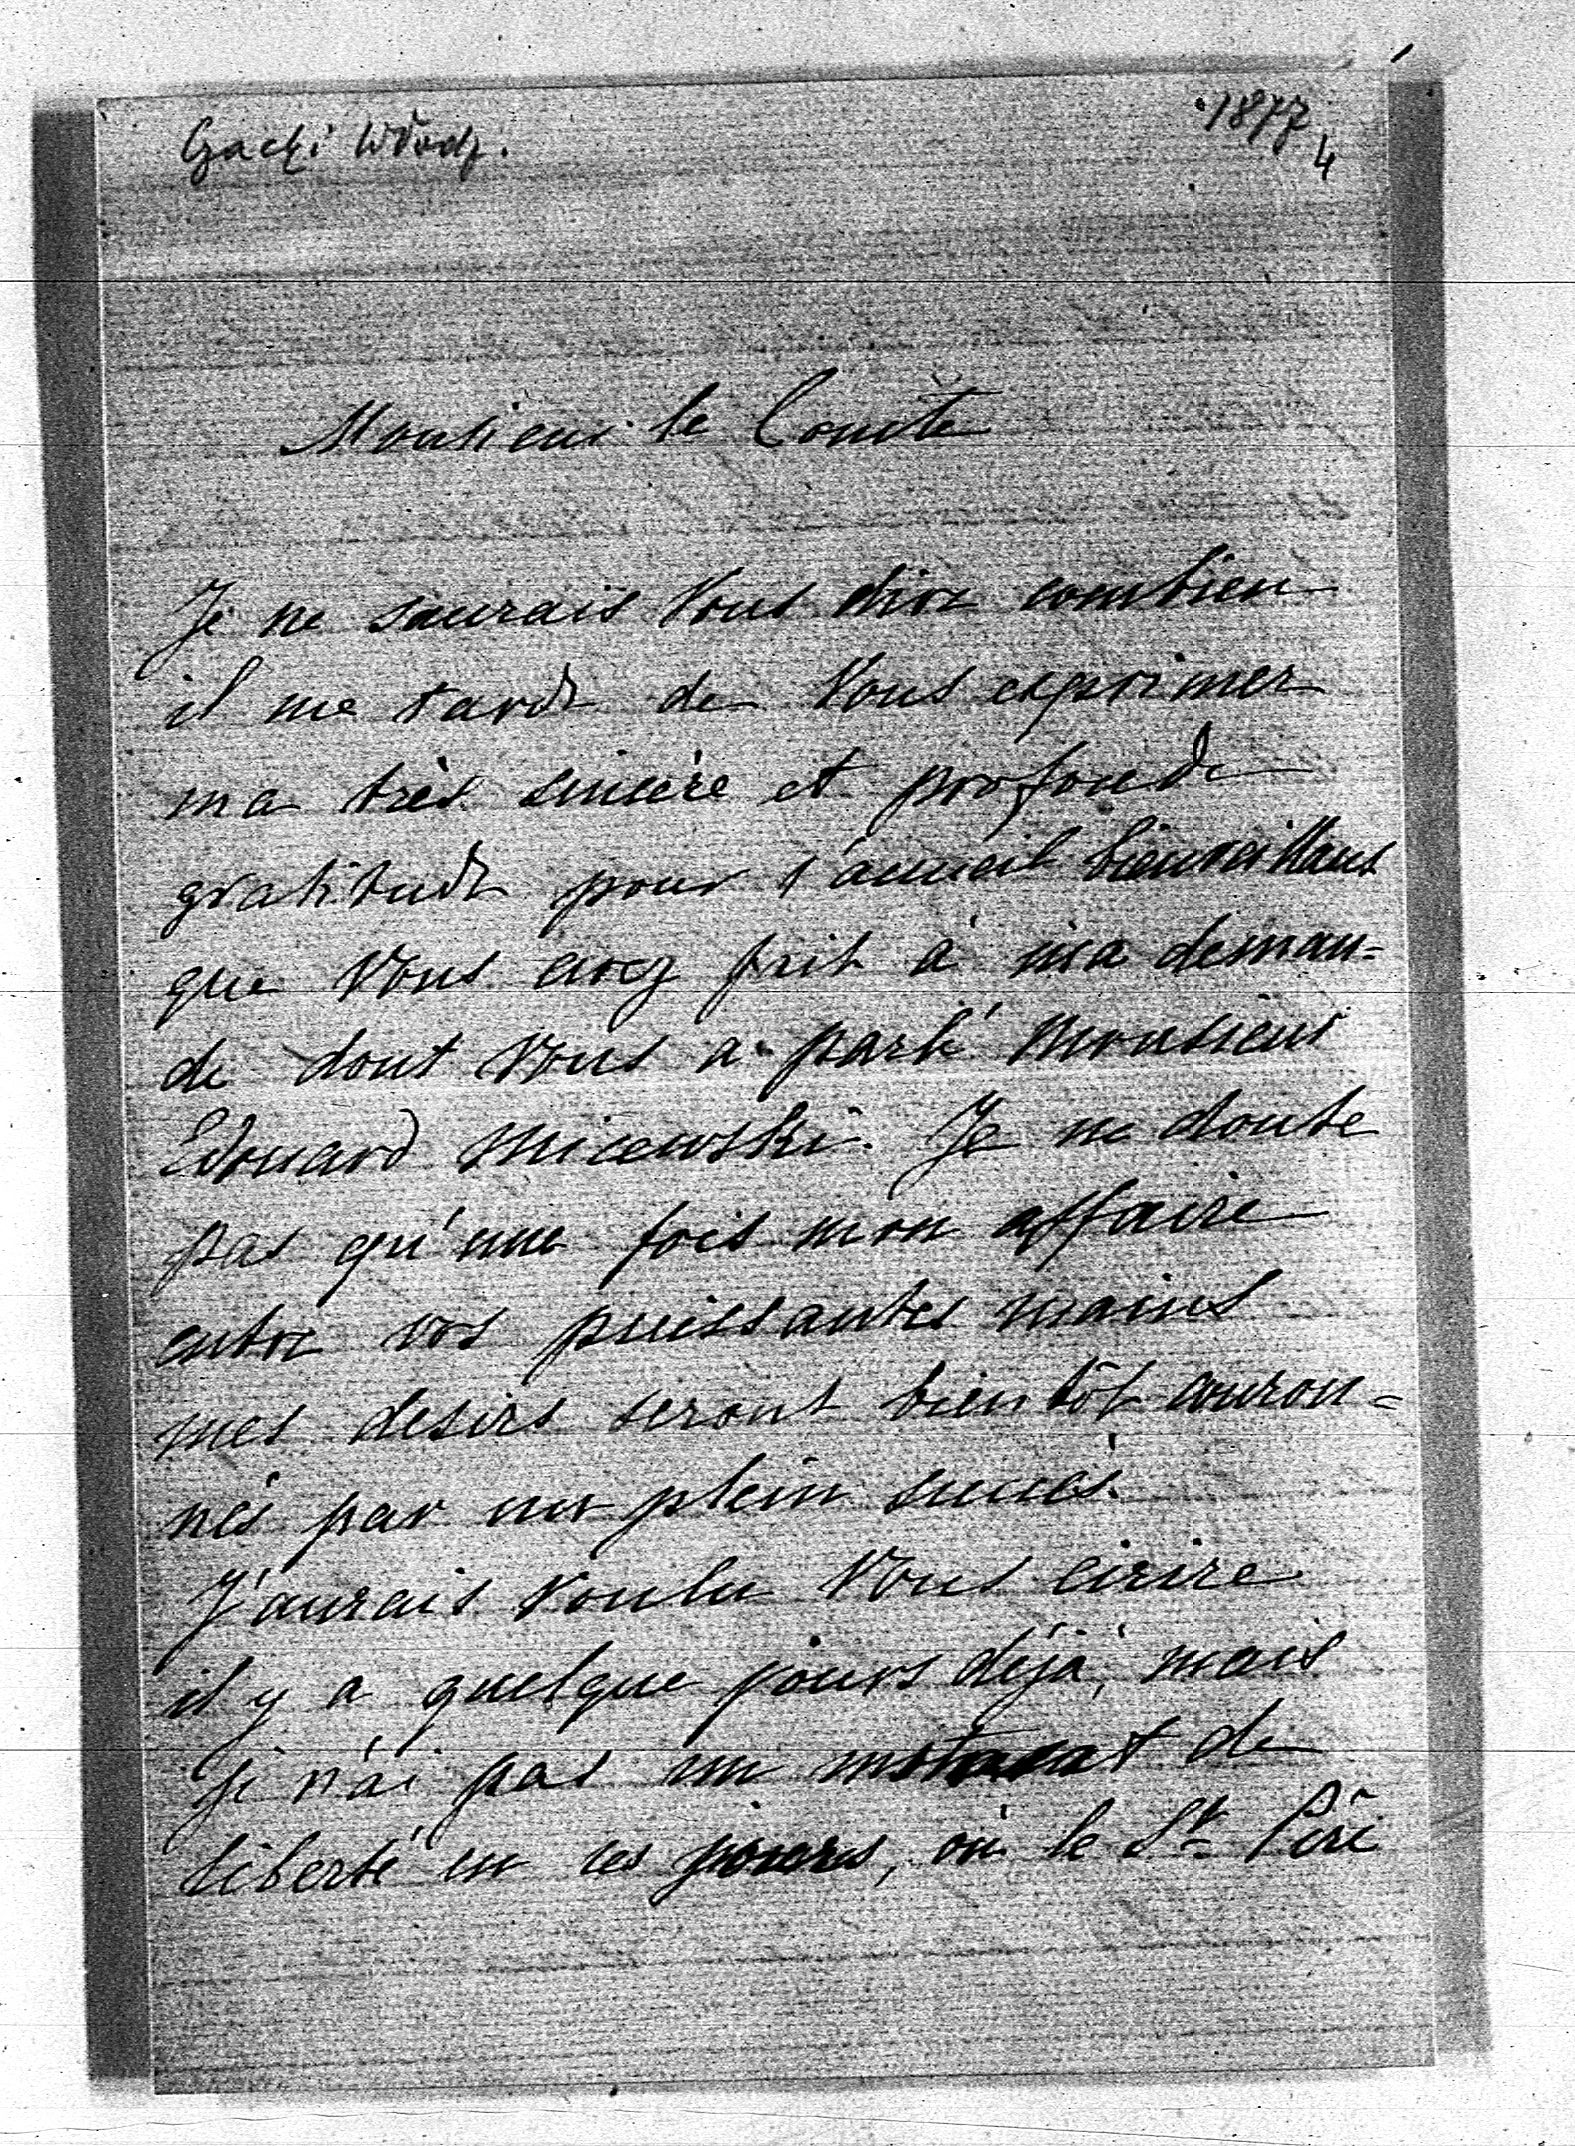 Czacki Włodz.
1877
4
Monsieur le Comte
Je ne saurais Vous dire combien
il me tarde de Vous exprimer
ma très sincère et profonde
gratitude pour l'accueil bienveillant
que Vous avez fait à ma deman=
de dont Vous a parlé Monsieur
Edouard Micewski. Je ne doute
pas qu'une fois mon affaire
entre vos puissantes mains
mes desirs seront bientôt couron=
nés par un plein succès.
J'aurais voulu Vous écrire
il y a quelque jours déjà, mais
je n'ai pas un instant de
liberté en ces jours, où le St. Père